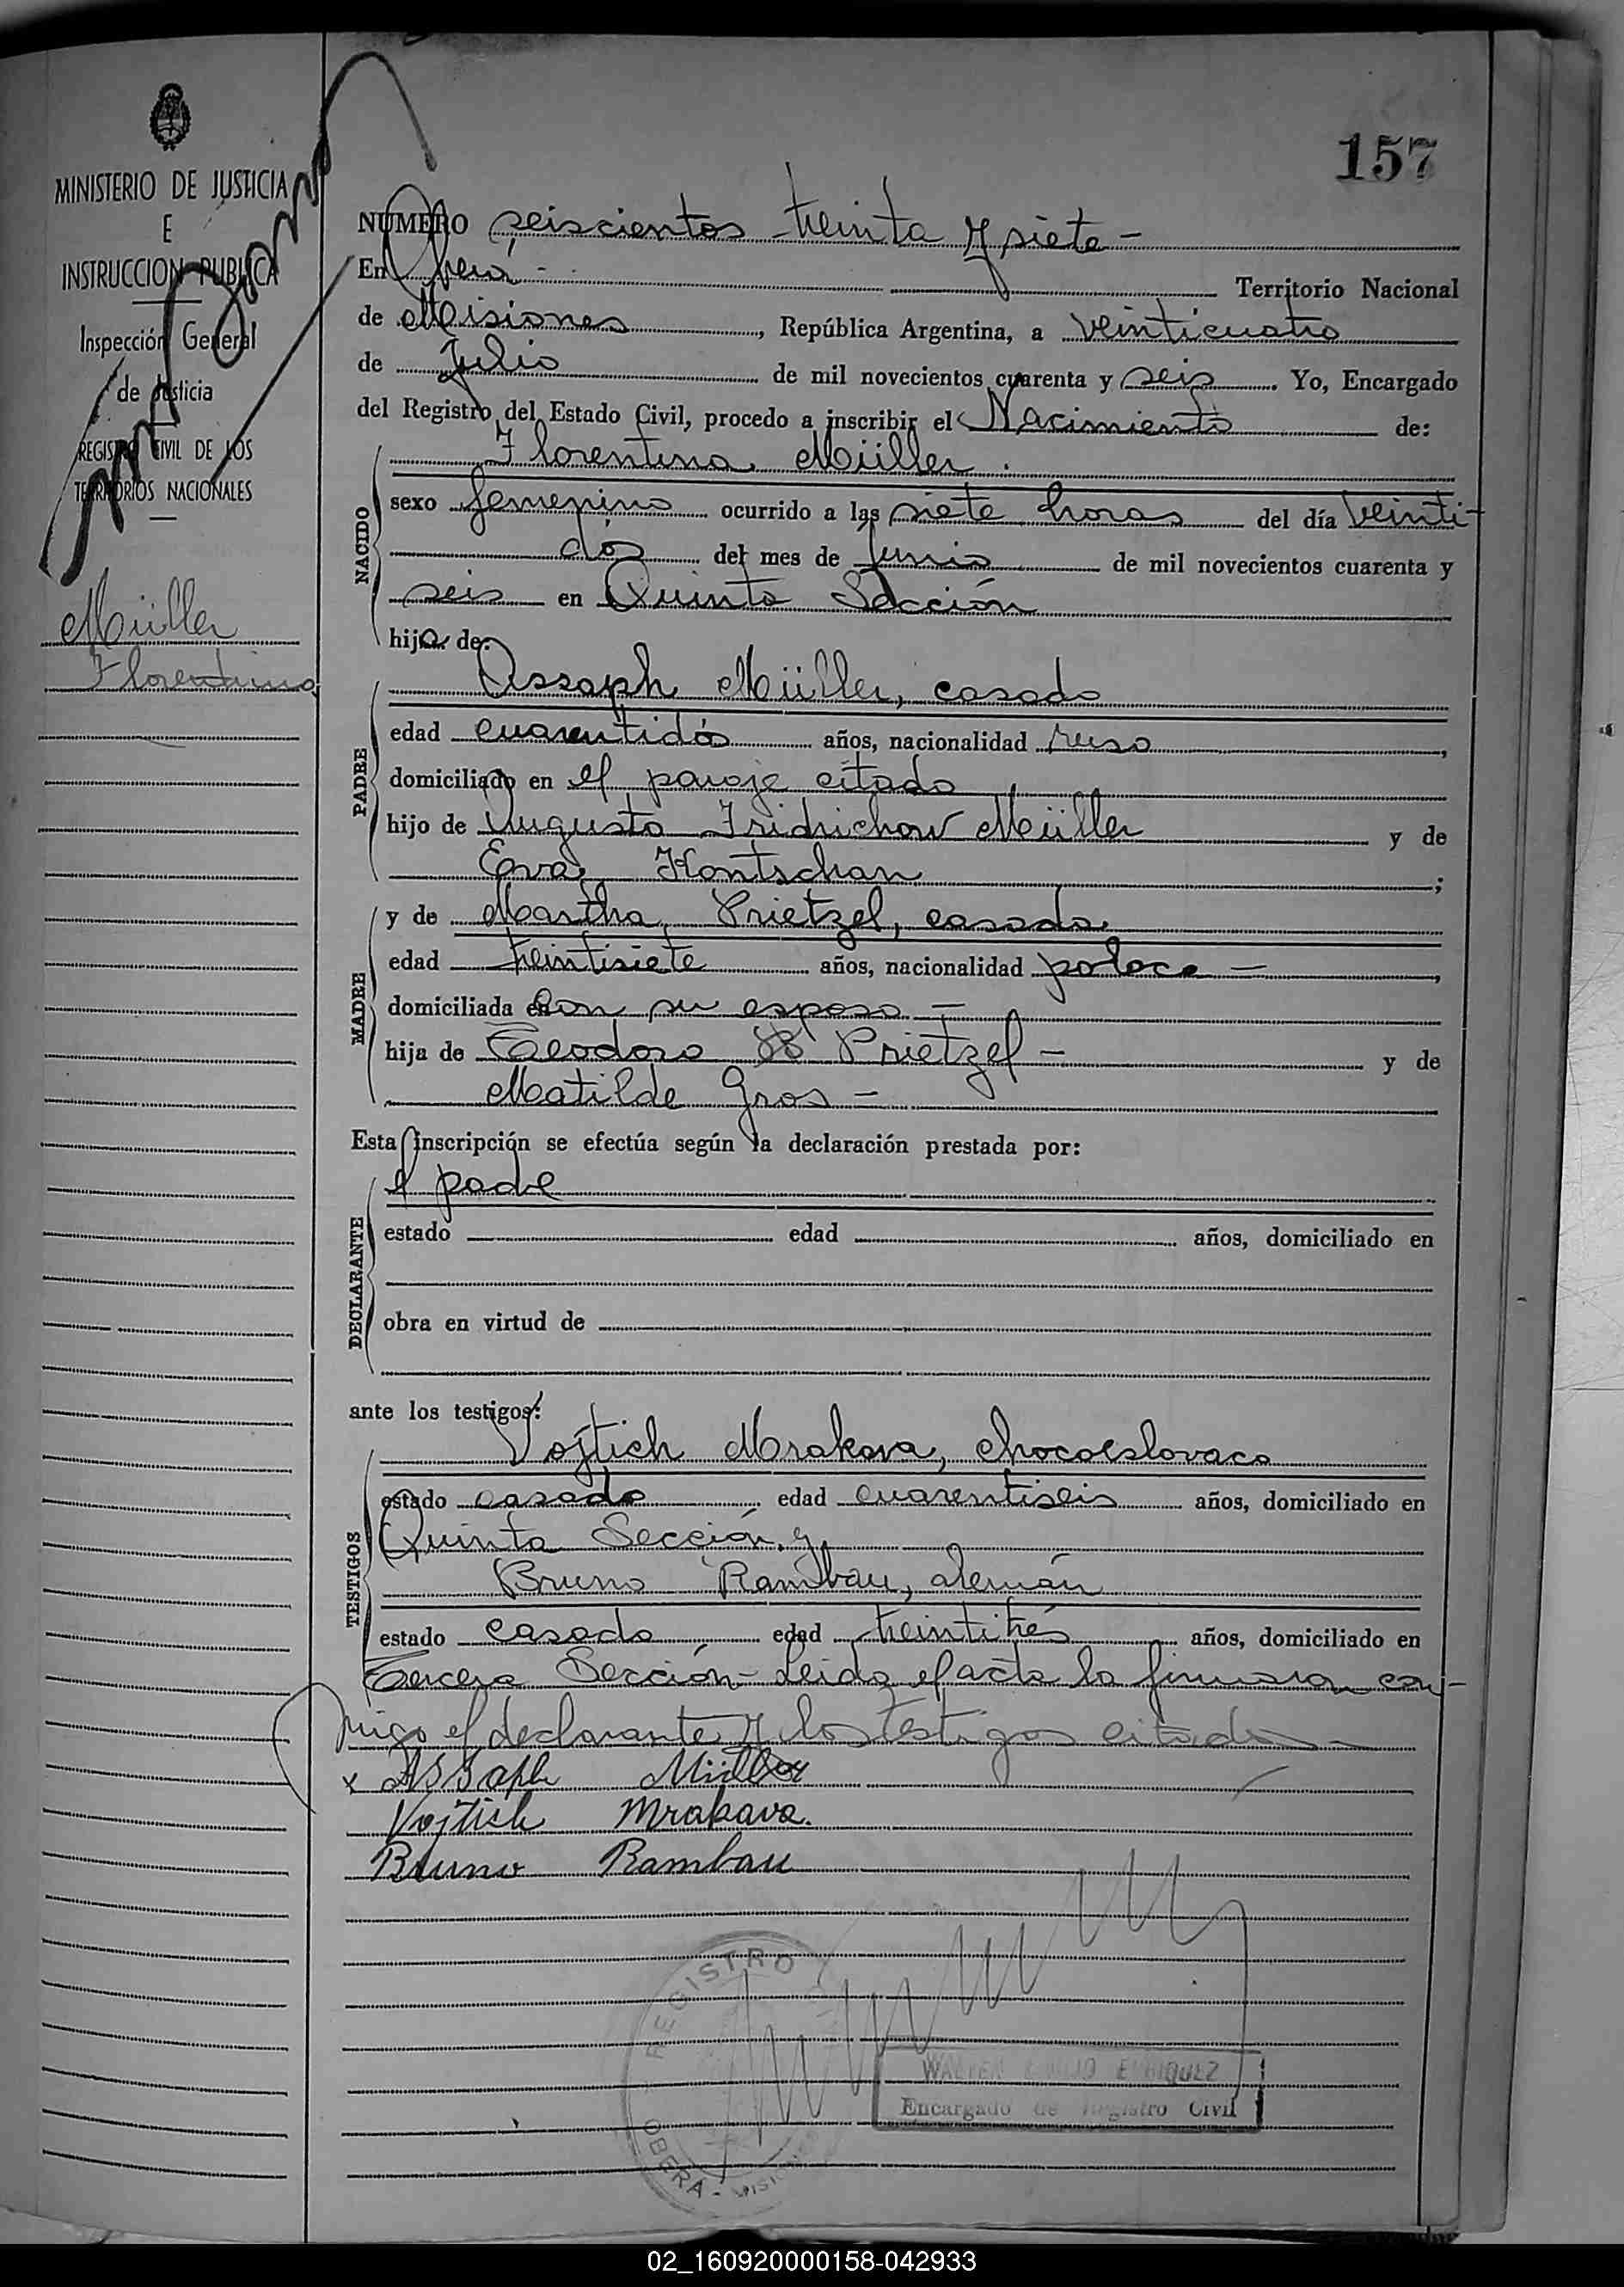 157
MINISTERIO DE JUSTICIA
E
INSTRUCCION PUBLICA
Inspección General
de Justicia
REGISTRO CIVIL DE LOS
TERRITORIOS NACIONALES
Müller
Florentina
NUMERO seiscientos treinta y siete -
En Oberá - Territorio Nacional
de Misiones, República Argentina, a veinticuatro
de Julio de mil novecientos cuarenta y seis. Yo, Encargado
del Registro del Estado Civil, procedo a inscribir el Nacimiento de:
Florentina Müller.
NACIDO
sexo femenino ocurrido a las siete horas del día veinti-
dos del mes de Junio de mil novecientos cuarenta y
seis en Quinta Sección
hija de:
Assaph Müller, casado
PADRE
edad cuarentidós años, nacionalidad ruso,
domiciliado en el paraje citado
hijo de Augusto Fridrichow Müller y de
Eva Hontschar;
MADRE
y de Martha Prietzel, casada
edad treintisiete años, nacionalidad polaca -,
domiciliada en con su esposo -
hija de Teodoro Prietzel - y de
Matilde Gros -
Esta inscripción se efectúa según la declaración prestada por:
el padre
DECLARANTE
estado edad años, domiciliado en
obra en virtud de
ante los testigos:
Vojtich Mrakava, chocoeslovaco
TESTIGOS
estado casado edad cuarentiseis años, domiciliado en
Quinta Sección y
Bruno Rambau, alemán
estado casado edad treintitrés años, domiciliado en
Tercera Sección - Leida el acta la firmaron con-
migo el declarante y los testigos citados -
x Assaph Müller
Vojtich Mrakava.
Bruno Rambau
REGISTRO
OBERA - MISIONES
WALTER EMILIO ENRIQUEZ
Encargado de Registro Civil
02_160920000158-042933